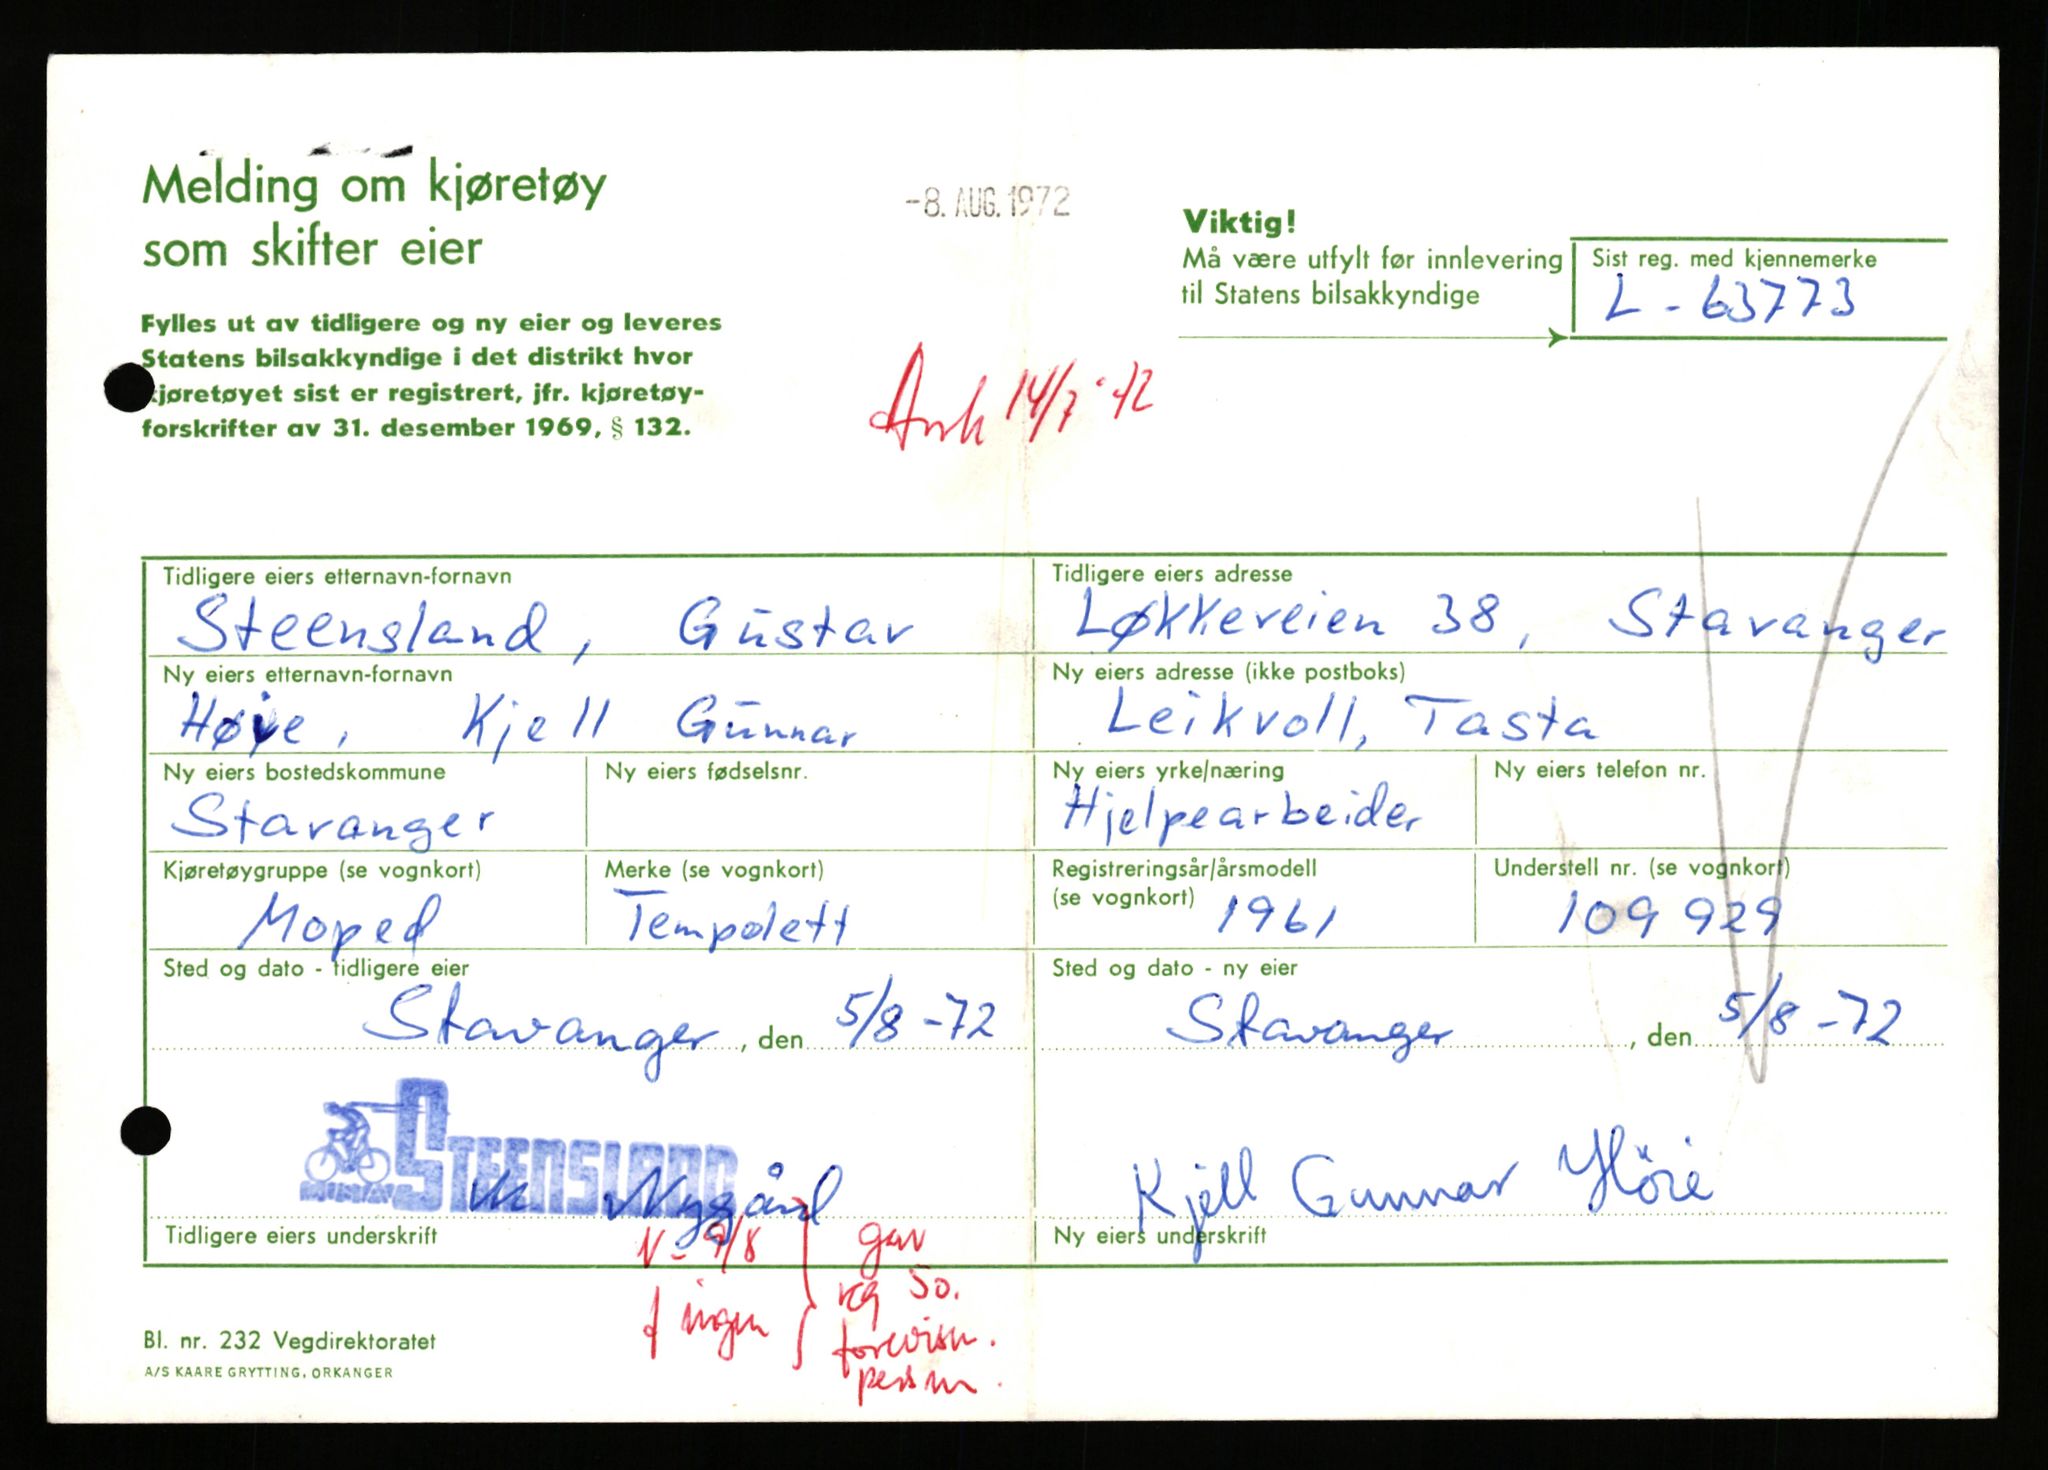 Melding om kjøretøy
som skifter eier
-8. AUG. 1972
Viktig!
Må være utfylt før innlevering
til Statens bilsakkyndige
Sist reg. med kjennemerke
L - 63773
Fylles ut av tidligere og ny eier og leveres
Statens bilsakkyndige i det distrikt hvor
kjøretøyet sist er registrert, jfr. kjøretøy-
forskrifter av 31. desember 1969, § 132.
14/7 - 72
Tidligere eiers etternavn-fornavn
Steensland, Gustav
Tidligere eiers adresse
Løkkeveien 38, Stavanger
Ny eiers etternavn-fornavn
Høie, Kjell Gunnar
Ny eiers adresse (ikke postboks)
Leikvoll, Tasta
Ny eiers bostedskommune
Stavanger
Ny eiers fødselsnr.
Ny eiers yrke/næring
Hjelpearbeider
Ny eiers telefon nr.
Kjøretøygruppe (se vognkort)
Moped
Merke (se vognkort)
Tempolett
Registreringsår/årsmodell
(se vognkort) 1961
Understell nr. (se vognkort)
109 929
Sted og dato - tidligere eier
Stavanger, den 5/8 - 72
Sted og dato - ny eier
Stavanger, den 5/8 - 72
STEENSLAND
Nygård
Tidligere eiers underskrift
Kjell Gunnar Höie
Ny eiers underskrift
N - 9/8
ingen
gav
Bl. nr. 232 Vegdirektoratet
A/S KAARE GRYTTING, ORKANGER